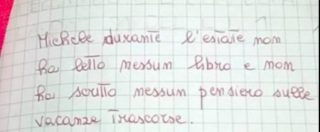 Michele durante l'estate non
ha letto nessun libro e non
ha scritto nessun pensiero sulle
vacanze trascorse.